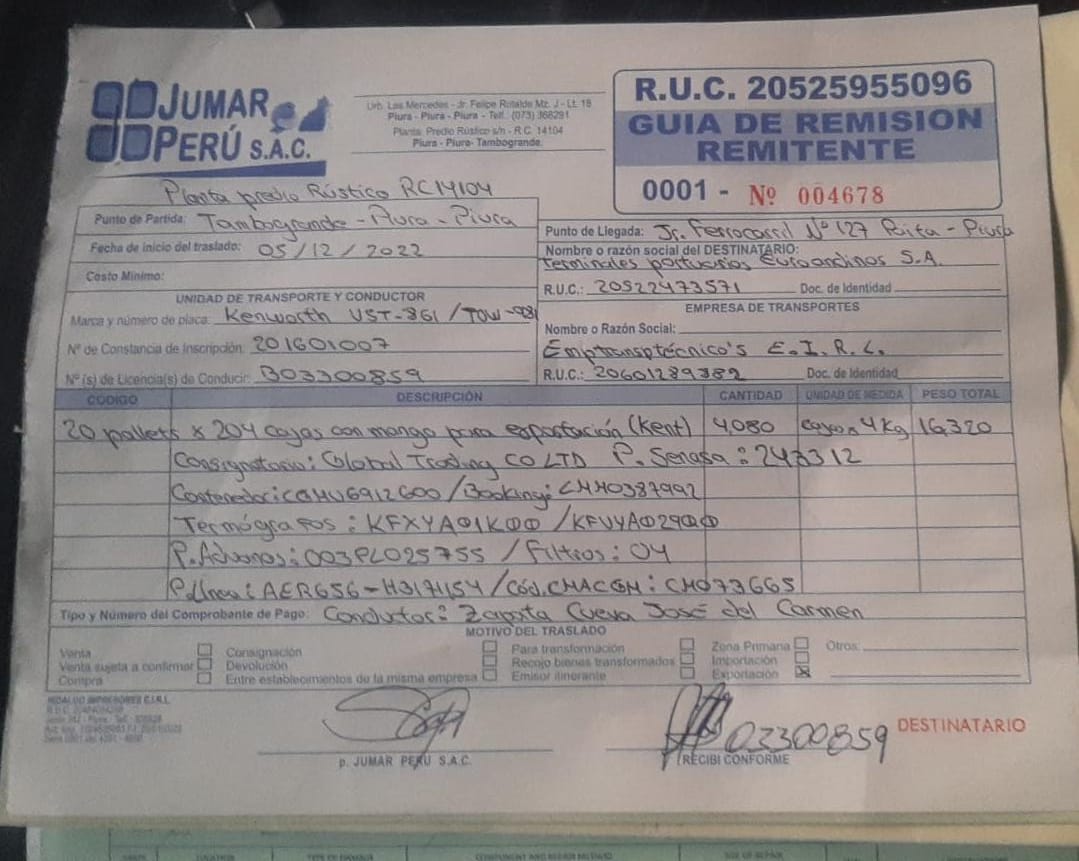 JUMAR
PERÚ S.A.C.
Urb. Las Mercedes - Jr. Felipe Rotalde Mz. J - Lt. 18
Piura - Piura - Piura - Telf.: (073) 368291
Planta: Predio Rústico s/n - R.C. 14104
Piura - Piura- Tambogrande.
R.U.C. 20525955096
GUIA DE REMISION
REMITENTE
0001 - Nº 004678
Planta predio Rústico RC14104
Punto de Partida: Tambogrande - Piura - Piura
Fecha de inicio del traslado: 05/12/2022
Costo Mínimo:
Punto de Llegada: Jr. Ferrocarril Nº 127 Paita - Piura
Nombre o razón social del DESTINATARIO:
Terminales portuarios Euroandinos S.A.
R.U.C.: 20522473571 Doc. de Identidad
UNIDAD DE TRANSPORTE Y CONDUCTOR
Marca y número de placa: Kenworth VST-861 /
Nº de Constancia de Inscripción: 201601007
Nº (s) de Licencia(s) de Conducir: B03300859
EMPRESA DE TRANSPORTES
Nombre o Razón Social:
Emptransptécnico's E.I.R.L.
R.U.C.: 20601289382 Doc. de Identidad
CÓDIGO DESCRIPCIÓN CANTIDAD UNIDAD DE MEDIDA PESO TOTAL
20 pallets x 204 cajas con mango para exportación (Kent) 4,080 cajas 4 Kg 16,320
Consignatario: Global Trading CO LTD P. Senasa:
Contenedor: /Booking: CMH0387992
Termógrafos: KFXYA01K00 /
P. Aduanas: 003PL025755 / Filtros: 04
P. Línea: AER656-H3171154 / Cód. CMACGM: CH073665
Tipo y Número del Comprobante de Pago: Conductor: Zapata Cueva José del Carmen
MOTIVO DEL TRASLADO
Venta Consignación Para transformación Zona Primaria Otros:
Venta sujeta a confirmar Devolución Recojo bienes transformados Importación
Compra Entre establecimientos de la misma empresa Emisor itinerante Exportación X
HIDALGO IMPRESORES E.I.R.L.
03300859
DESTINATARIO
p. JUMAR PERU S.A.C.
RECIBI CONFORME